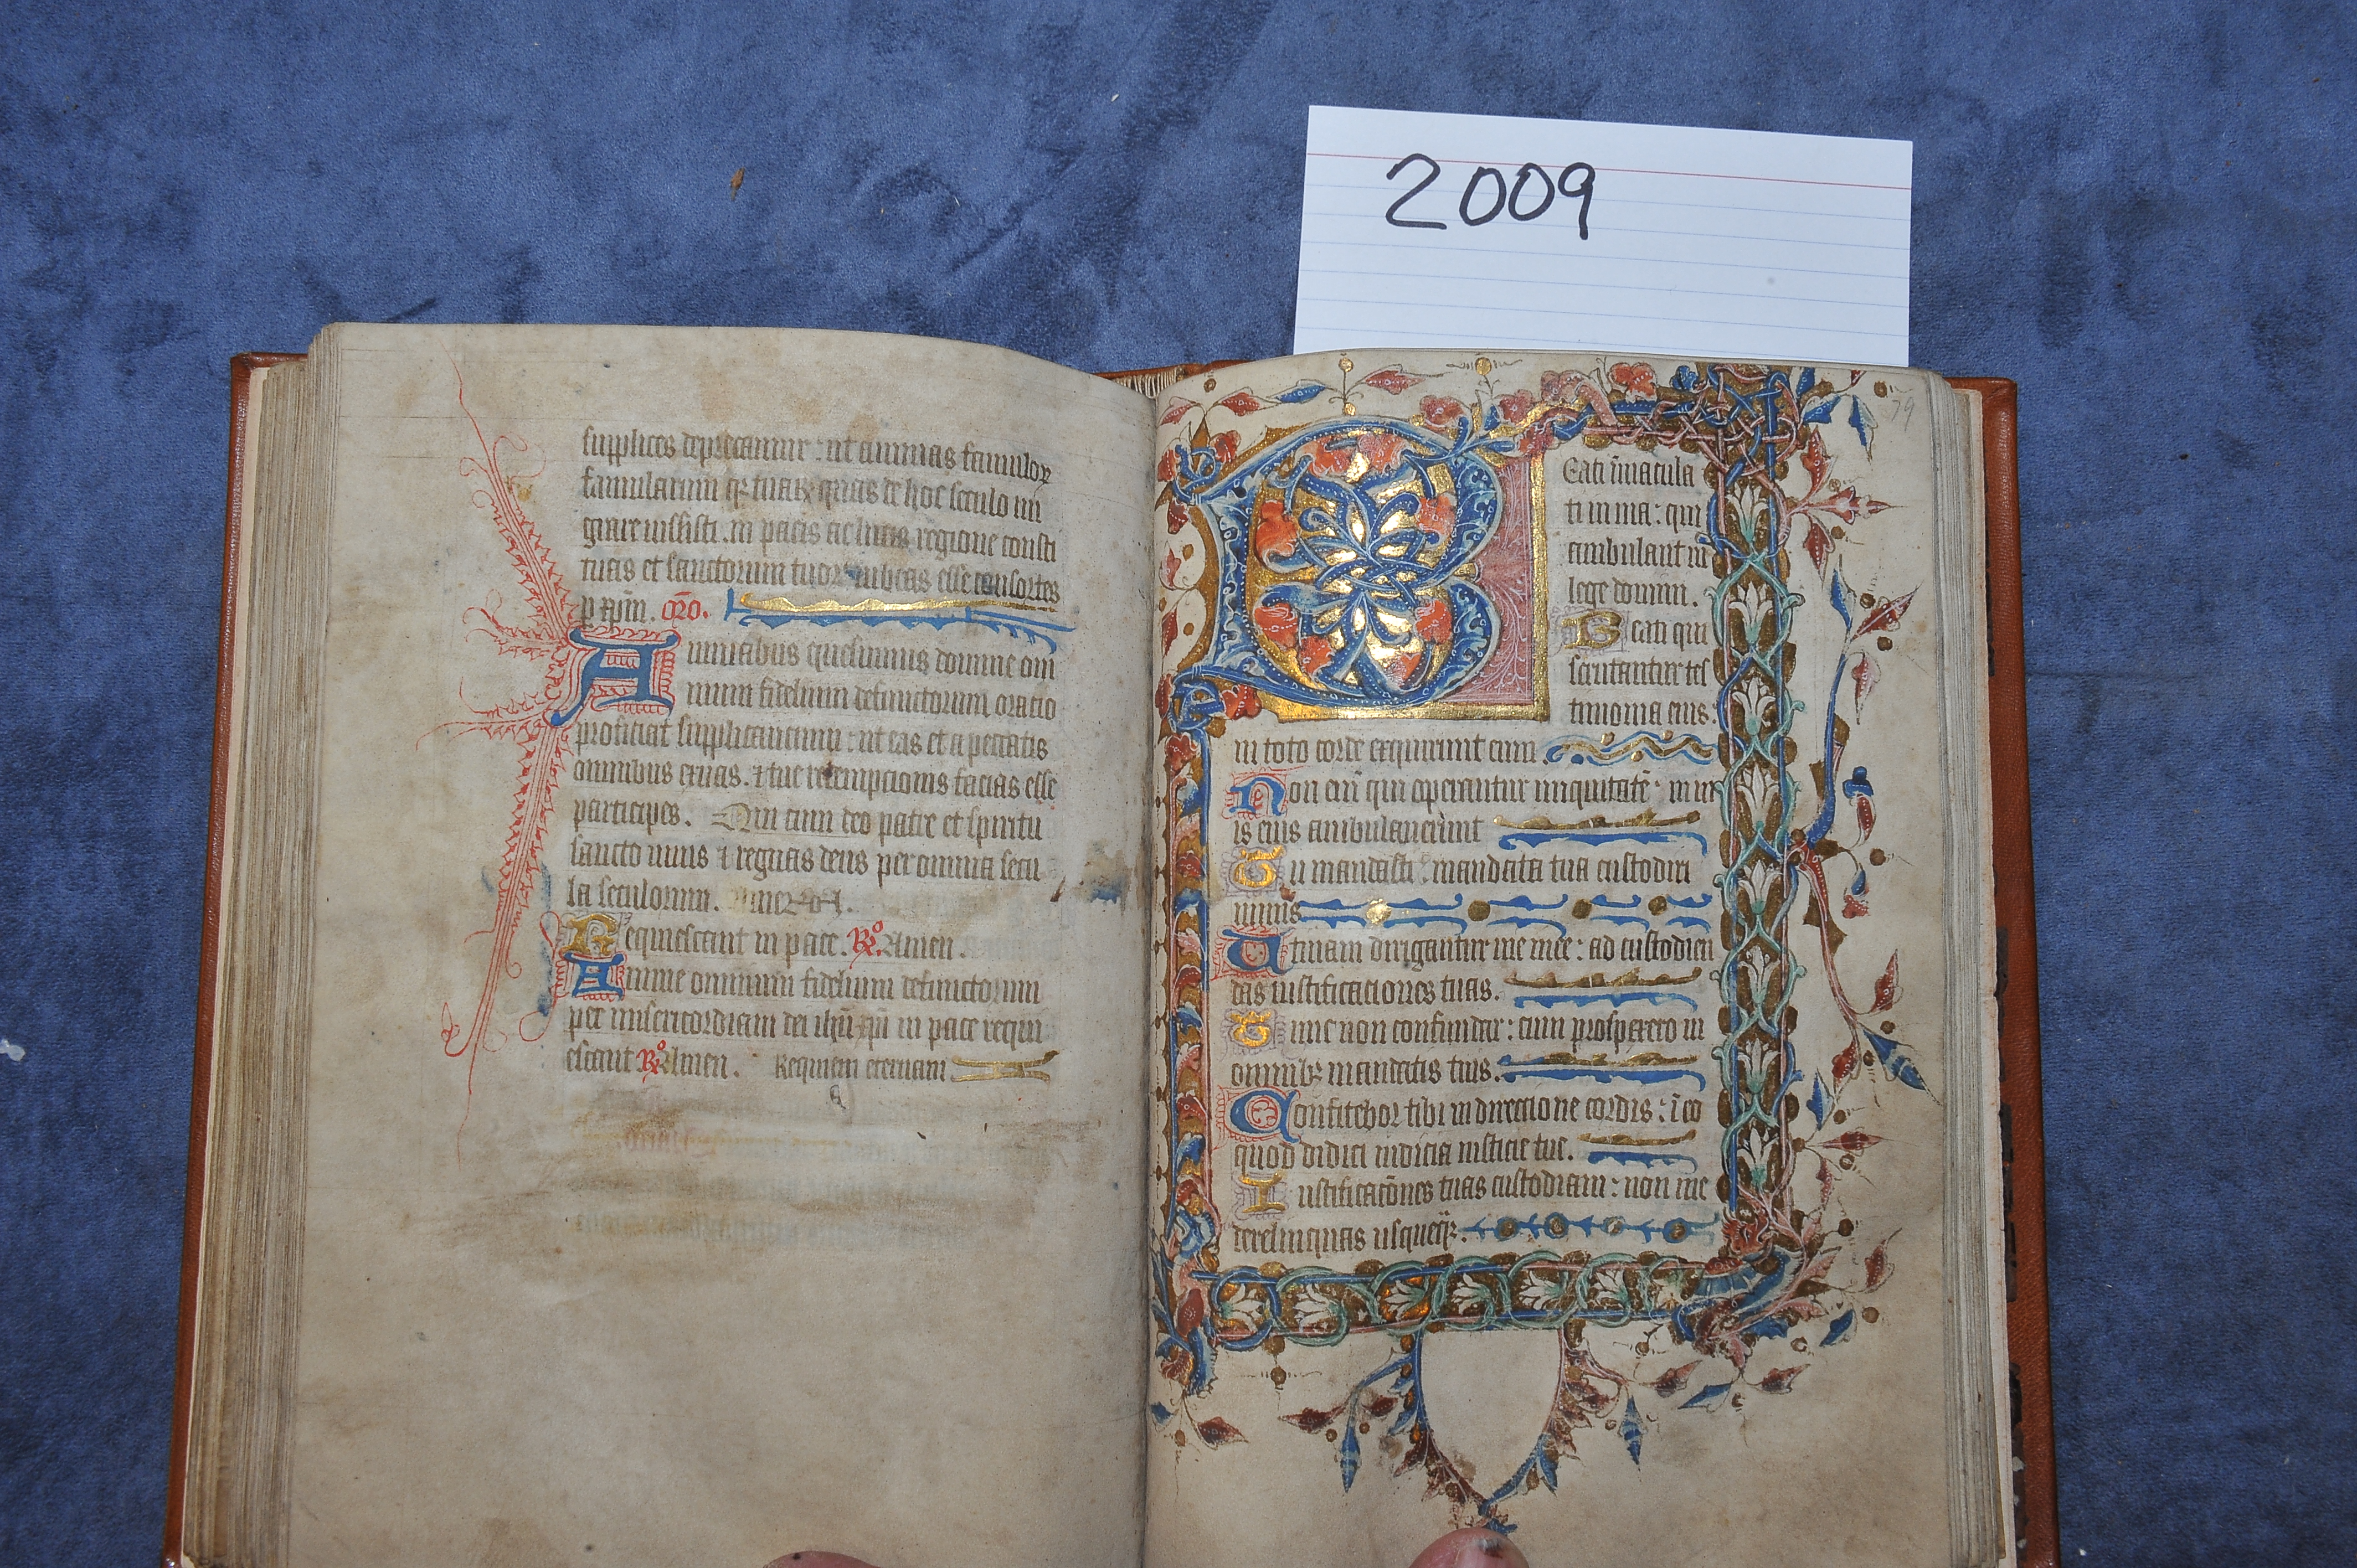 2009
supplices deprecamur : ut animas famuloꝝ
famularum qꝫ tuaꝝ quas de hoc seculo mi
grare iussisti . in pacis ac lucis regione consti
tuas et sanctorum tuoꝝ iubeas esse consortes
p xp̄m . oro̅.
Animabus quesumus domine om
nium fidelium defunctorum oracio
proficiat supplicancium : ut eas et a peccatis
omnibus exuas . ⁊ tue redempcionis facias esse
participes . Qui cum deo patre et spiritu
sancto uiuis ⁊ regnas deus per omnia secu
la seculorum . Amen
Requiescant in pace . R̊. Amen .
Anime omnium fidelium defunctorum
per misericordiam dei ihū xp̄i in pace requi
escant R̊ Amen . Requiem eternam
79
BEati īmacula
ti in uia : qui
ambulant in
lege domini .
Beati qui
scrutantur tes
timonia eius .
in toto corde exquirunt eum .
Non em̄ qui operantur iniquitatē : in ui
is eius ambulauerunt
Tu mandasti : mandata tua custodiri
nimis
Utinam dirigantur uie mee : ad custodien
das iustificaciones tuas .
Tunc non confundar : cum prospexero in
omnibꝫ mandatis tuis .
Confitebor tibi in direccione cordis : ī eo
quod didici iudicia iusticie tue .
Iustificacōnes tuas custodiam : non me
derelinquas usqueqꝫ .